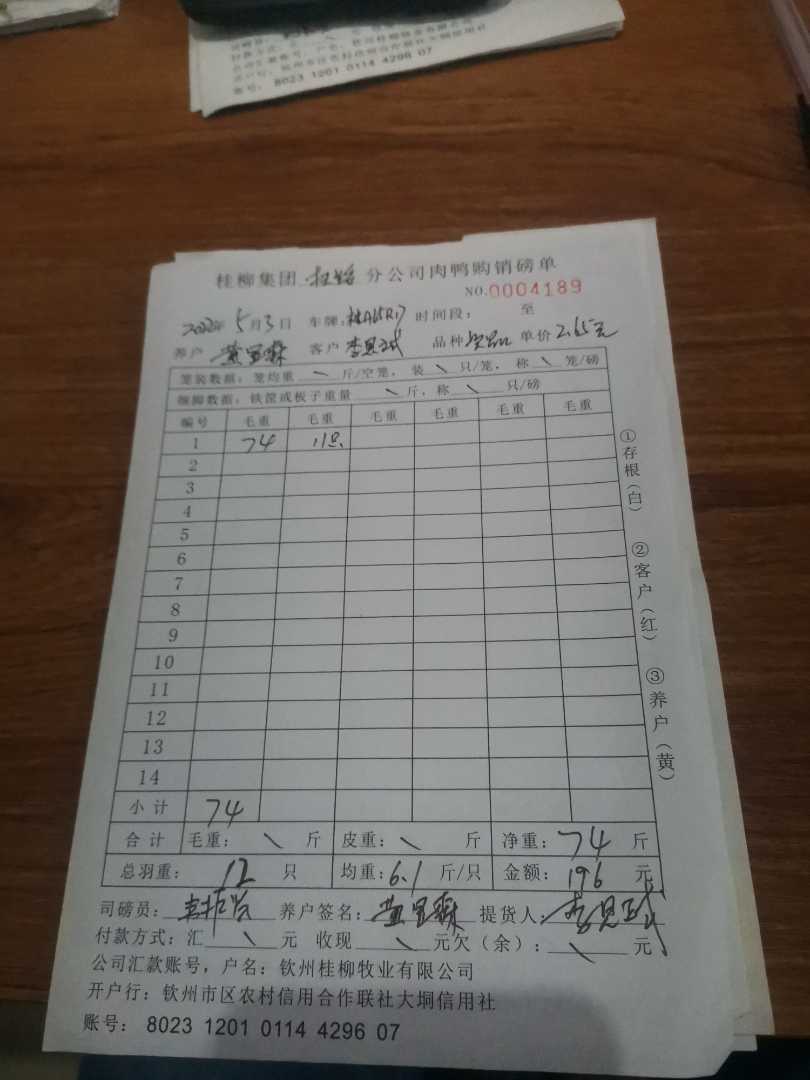 账号: 8023 1201 0114 4296 07
桂柳集团 分公司肉鸭购销磅单
NO.0004189
2022年5月3日 车牌: 时间段: 至
养户 客户 品种 单价2.65元
笼装数据: 笼均重 \ 斤/空笼, 装 \ 只/笼, 称 \ 笼/磅
捆脚数据: 铁筐或板子重量 \ 斤, 称 \ 只/磅
编号 毛重 毛重 毛重 毛重 毛重 毛重
1 74
2
3
4
5
6
7
8
9
10
11
12
13
14
小计 74
合计 毛重: \ 斤 皮重: \ 斤 净重: 74 斤
总羽重: 12 只 均重: 6.1 斤/只 金额: 196 元
司磅员: 养户签名: 提货人:
付款方式: 汇 \ 元 收现 \ 元欠(余): \ 元
公司汇款账号, 户名: 钦州桂柳牧业有限公司
开户行: 钦州市区农村信用合作联社大垌信用社
账号: 8023 1201 0114 4296 07
①存根(白)
②客户(红)
③养户(黄)